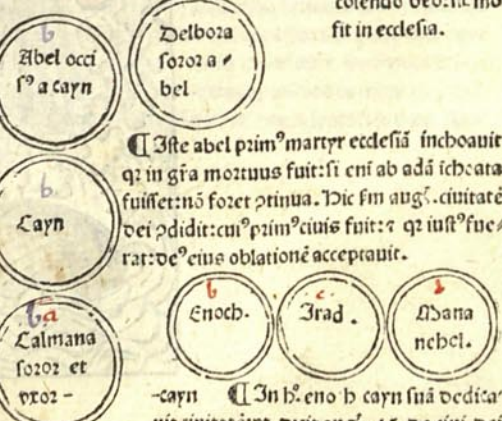 colendo deo: sic mo
fit in ecclesia.
b
Abel occi
sꝰ a cayn
Delbora
soror a⸗
bel
¶ Iste abel primꝰ martyr ecclesiã inchoauit
qꝛ in gr̃a mortuus fuit: si eni͂ ab adã icheata
fuisset: nõ foret ↄtinua. Hic s̃m augꝰ. ciuitatẽ
dei ↄdidit: cuiꝰ primꝰ ciuis fuit: ⁊ qꝛ iustꝰ fue⸗
rat: deꝰ eius oblationẽ acceptauit.
b
Cayn
b a
Calmana
soror et
vxor -
b
Enoch.
c
Irad.
b
Mana
nehel.
-cayn ¶ In hꝰ. eno h cayn suã dedica